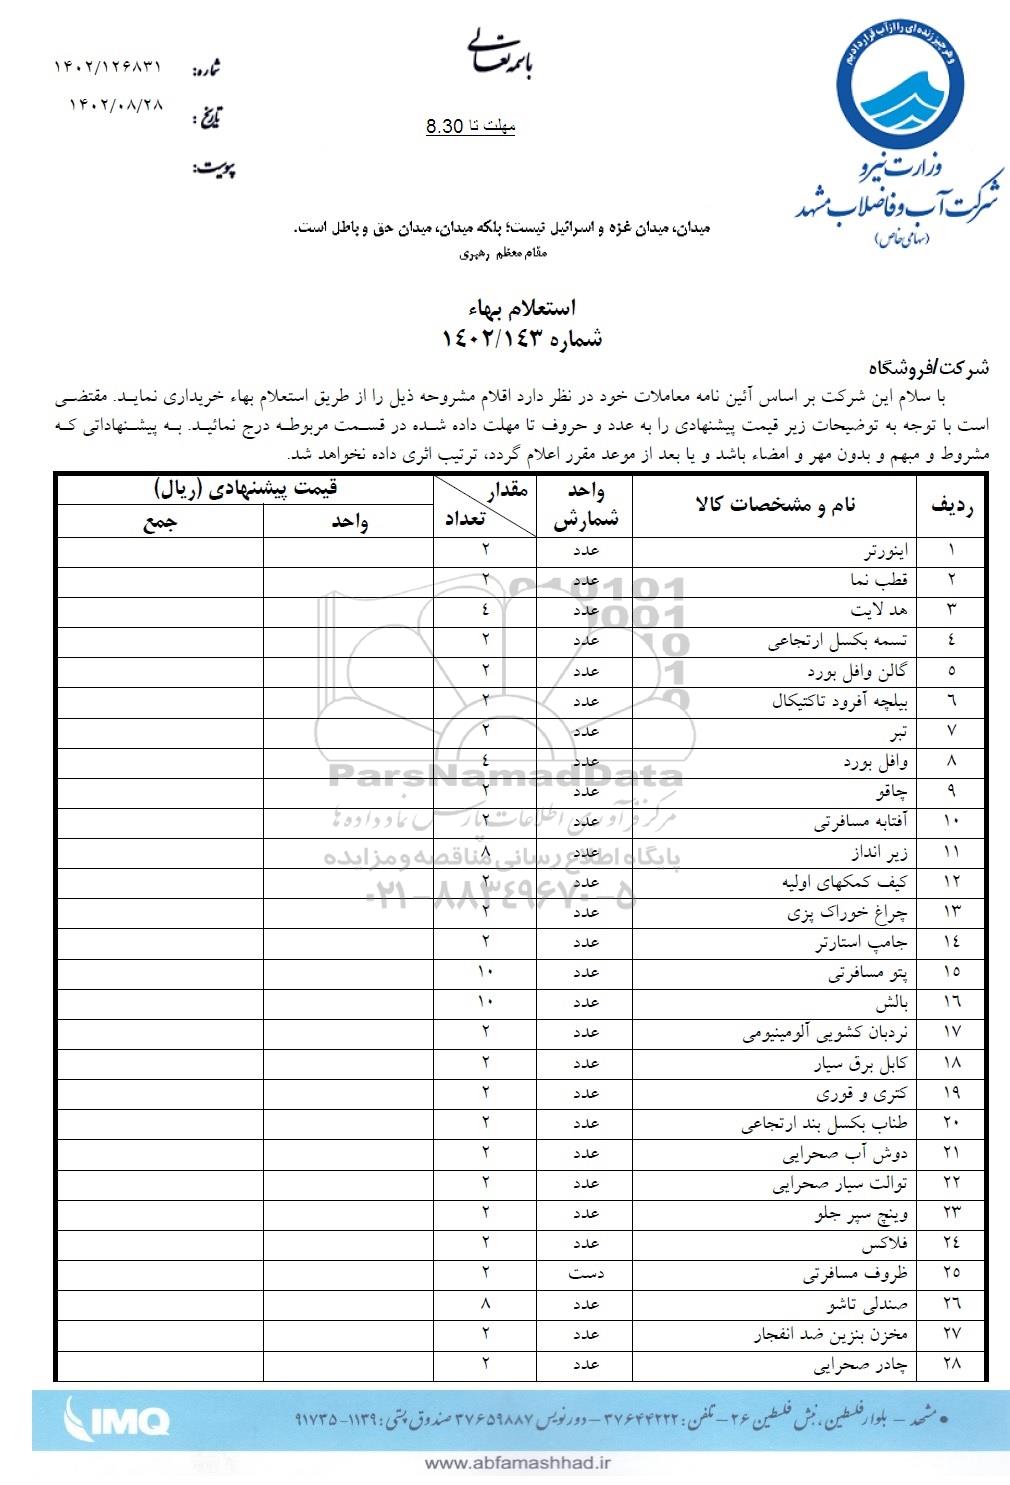 باسمه تعالی
شماره: ۱۴۰۲/۱۲۶۸۳۱
تاریخ: ۱۴۰۲/۰۸/۲۸
پیوست:
مهلت تا 8.30
و هر چیز زنده ای را از آب قرار دادیم
وزارت نیرو
شرکت آب و فاضلاب مشهد
(سهامی خاص)
میدان، میدان غزه و اسرائیل نیست؛ بلکه میدان، میدان حق و باطل است.
مقام معظم رهبری
استعلام بهاء
شماره ۱۴۰۲/۱۴۳
شرکت/فروشگاه
با سلام این شرکت بر اساس آئین نامه معاملات خود در نظر دارد اقلام مشروحه ذیل را از طریق استعلام بهاء خریداری نماید. مقتضی
است با توجه به توضیحات زیر قیمت پیشنهادی را به عدد و حروف تا مهلت داده شده در قسمت مربوطه درج نمائید. به پیشنهاداتی که
مشروط و مبهم و بدون مهر و امضاء باشد و یا بعد از موعد مقرر اعلام گردد، ترتیب اثری داده نخواهد شد.
ردیف نام و مشخصات کالا واحد شمارش مقدار تعداد قیمت پیشنهادی (ریال)
واحد جمع
۱ اینورتر عدد ۲
۲ قطب نما عدد ۲
۳ هد لایت عدد ۴
۴ تسمه بکسل ارتجاعی عدد ۲
۵ گالن وافل بورد عدد ۲
۶ بیلچه آفرود تاکتیکال عدد ۲
۷ تبر عدد ۲
۸ وافل بورد عدد ۴
۹ چاقو عدد ۲
۱۰ آفتابه مسافرتی عدد ۲
۱۱ زیر انداز عدد ۸
۱۲ کیف کمکهای اولیه عدد ۲
۱۳ چراغ خوراک پزی عدد ۲
۱۴ جامپ استارتر عدد ۲
۱۵ پتو مسافرتی عدد ۱۰
۱۶ بالش عدد ۱۰
۱۷ نردبان کشویی آلومینیومی عدد ۲
۱۸ کابل برق سیار عدد ۲
۱۹ کتری و قوری عدد ۲
۲۰ طناب بکسل بند ارتجاعی عدد ۲
۲۱ دوش آب صحرایی عدد ۲
۲۲ توالت سیار صحرایی عدد ۲
۲۳ وینچ سپر جلو عدد ۲
۲۴ فلاکس عدد ۲
۲۵ ظروف مسافرتی دست ۲
۲۶ صندلی تاشو عدد ۸
۲۷ مخزن بنزین ضد انفجار عدد ۲
۲۸ چادر صحرایی عدد ۲
ParsNamadData
مرکز فرآوری اطلاعات پارس نماد داده ها
پایگاه اطلاع رسانی مناقصه و مزایده
۰۲۱-۸۸۳۴۹۶۷۰-۵
• مشهد - بلوار فلسطین، نبش فلسطین ۲۶ - تلفن: ۳۷۶۴۴۲۲۲ - دورنویس ۳۷۶۵۹۸۸۷ صندوق پستی: ۱۱۳۹-۹۱۷۳۵
IMQ
www.abfamashhad.ir